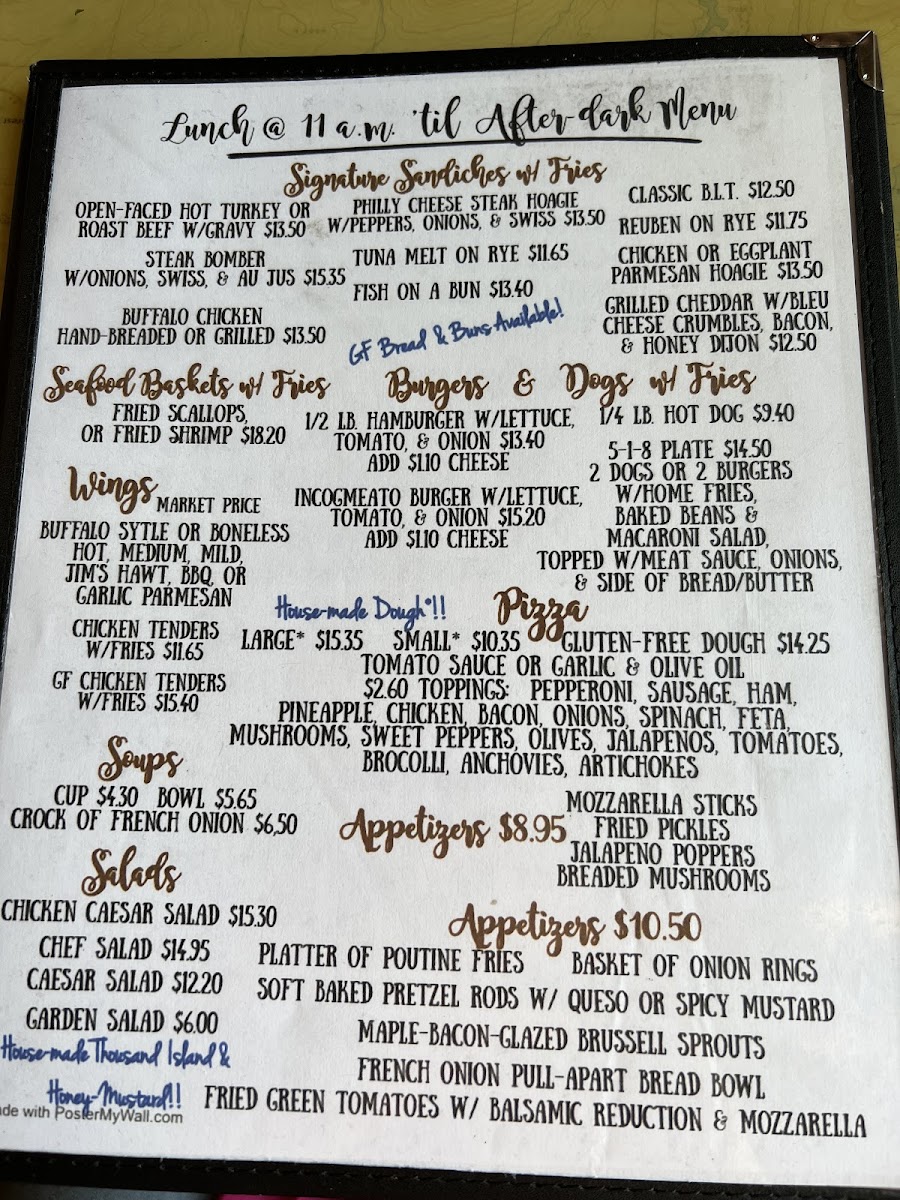 Lunch @ 11 a.m. 'til After-dark Menu
Signature Sandiches w/ Fries
OPEN-FACED HOT TURKEY OR
ROAST BEEF W/GRAVY $13.50
STEAK BOMBER
W/ONIONS, SWISS, & AU JUS $15.35
BUFFALO CHICKEN
HAND-BREADED OR GRILLED $13.50
PHILLY CHEESE STEAK HOAGIE
W/PEPPERS, ONIONS, & SWISS $13.50
TUNA MELT ON RYE $11.65
FISH ON A BUN $13.40
GF Bread & Buns Available!
CLASSIC B.L.T. $12.50
REUBEN ON RYE $11.75
CHICKEN OR EGGPLANT
PARMESAN HOAGIE $13.50
GRILLED CHEDDAR W/BLEU
CHEESE CRUMBLES, BACON,
& HONEY DIJON $12.50
Seafood Baskets w/ Fries
FRIED SCALLOPS,
OR FRIED SHRIMP $18.20
Burgers & Dogs w/ Fries
1/2 LB. HAMBURGER W/LETTUCE,
TOMATO, & ONION $13.40
ADD $1.10 CHEESE
INCOGMEATO BURGER W/LETTUCE,
TOMATO, & ONION $15.20
ADD $1.10 CHEESE
1/4 LB. HOT DOG $9.40
5-1-8 PLATE $14.50
2 DOGS OR 2 BURGERS
W/HOME FRIES,
BAKED BEANS &
MACARONI SALAD,
TOPPED W/MEAT SAUCE, ONIONS,
& SIDE OF BREAD/BUTTER
Wings MARKET PRICE
BUFFALO SYTLE OR BONELESS
HOT, MEDIUM, MILD,
JIM'S HAWT, BBQ, OR
GARLIC PARMESAN
CHICKEN TENDERS
W/FRIES $11.65
GF CHICKEN TENDERS
W/FRIES $15.40
House-made Dough*!! Pizza
LARGE* $15.35 SMALL* $10.35 GLUTEN-FREE DOUGH $14.25
TOMATO SAUCE OR GARLIC & OLIVE OIL
$2.60 TOPPINGS: PEPPERONI, SAUSAGE, HAM,
PINEAPPLE, CHICKEN, BACON, ONIONS, SPINACH, FETA,
MUSHROOMS, SWEET PEPPERS, OLIVES, JALAPENOS, TOMATOES,
BROCOLLI, ANCHOVIES, ARTICHOKES
Soups
CUP $4.30 BOWL $5.65
CROCK OF FRENCH ONION $6,50
Appetizers $8.95
MOZZARELLA STICKS
FRIED PICKLES
JALAPENO POPPERS
BREADED MUSHROOMS
Salads
CHICKEN CAESAR SALAD $15.30
CHEF SALAD $14.95
CAESAR SALAD $12.20
GARDEN SALAD $6.00
House-made Thousand Island &
Honey-Mustard!!
Appetizers $10.50
PLATTER OF POUTINE FRIES BASKET OF ONION RINGS
SOFT BAKED PRETZEL RODS W/ QUESO OR SPICY MUSTARD
MAPLE-BACON-GLAZED BRUSSELL SPROUTS
FRENCH ONION PULL-APART BREAD BOWL
FRIED GREEN TOMATOES W/ BALSAMIC REDUCTION & MOZZARELLA
de with PosterMyWall.com